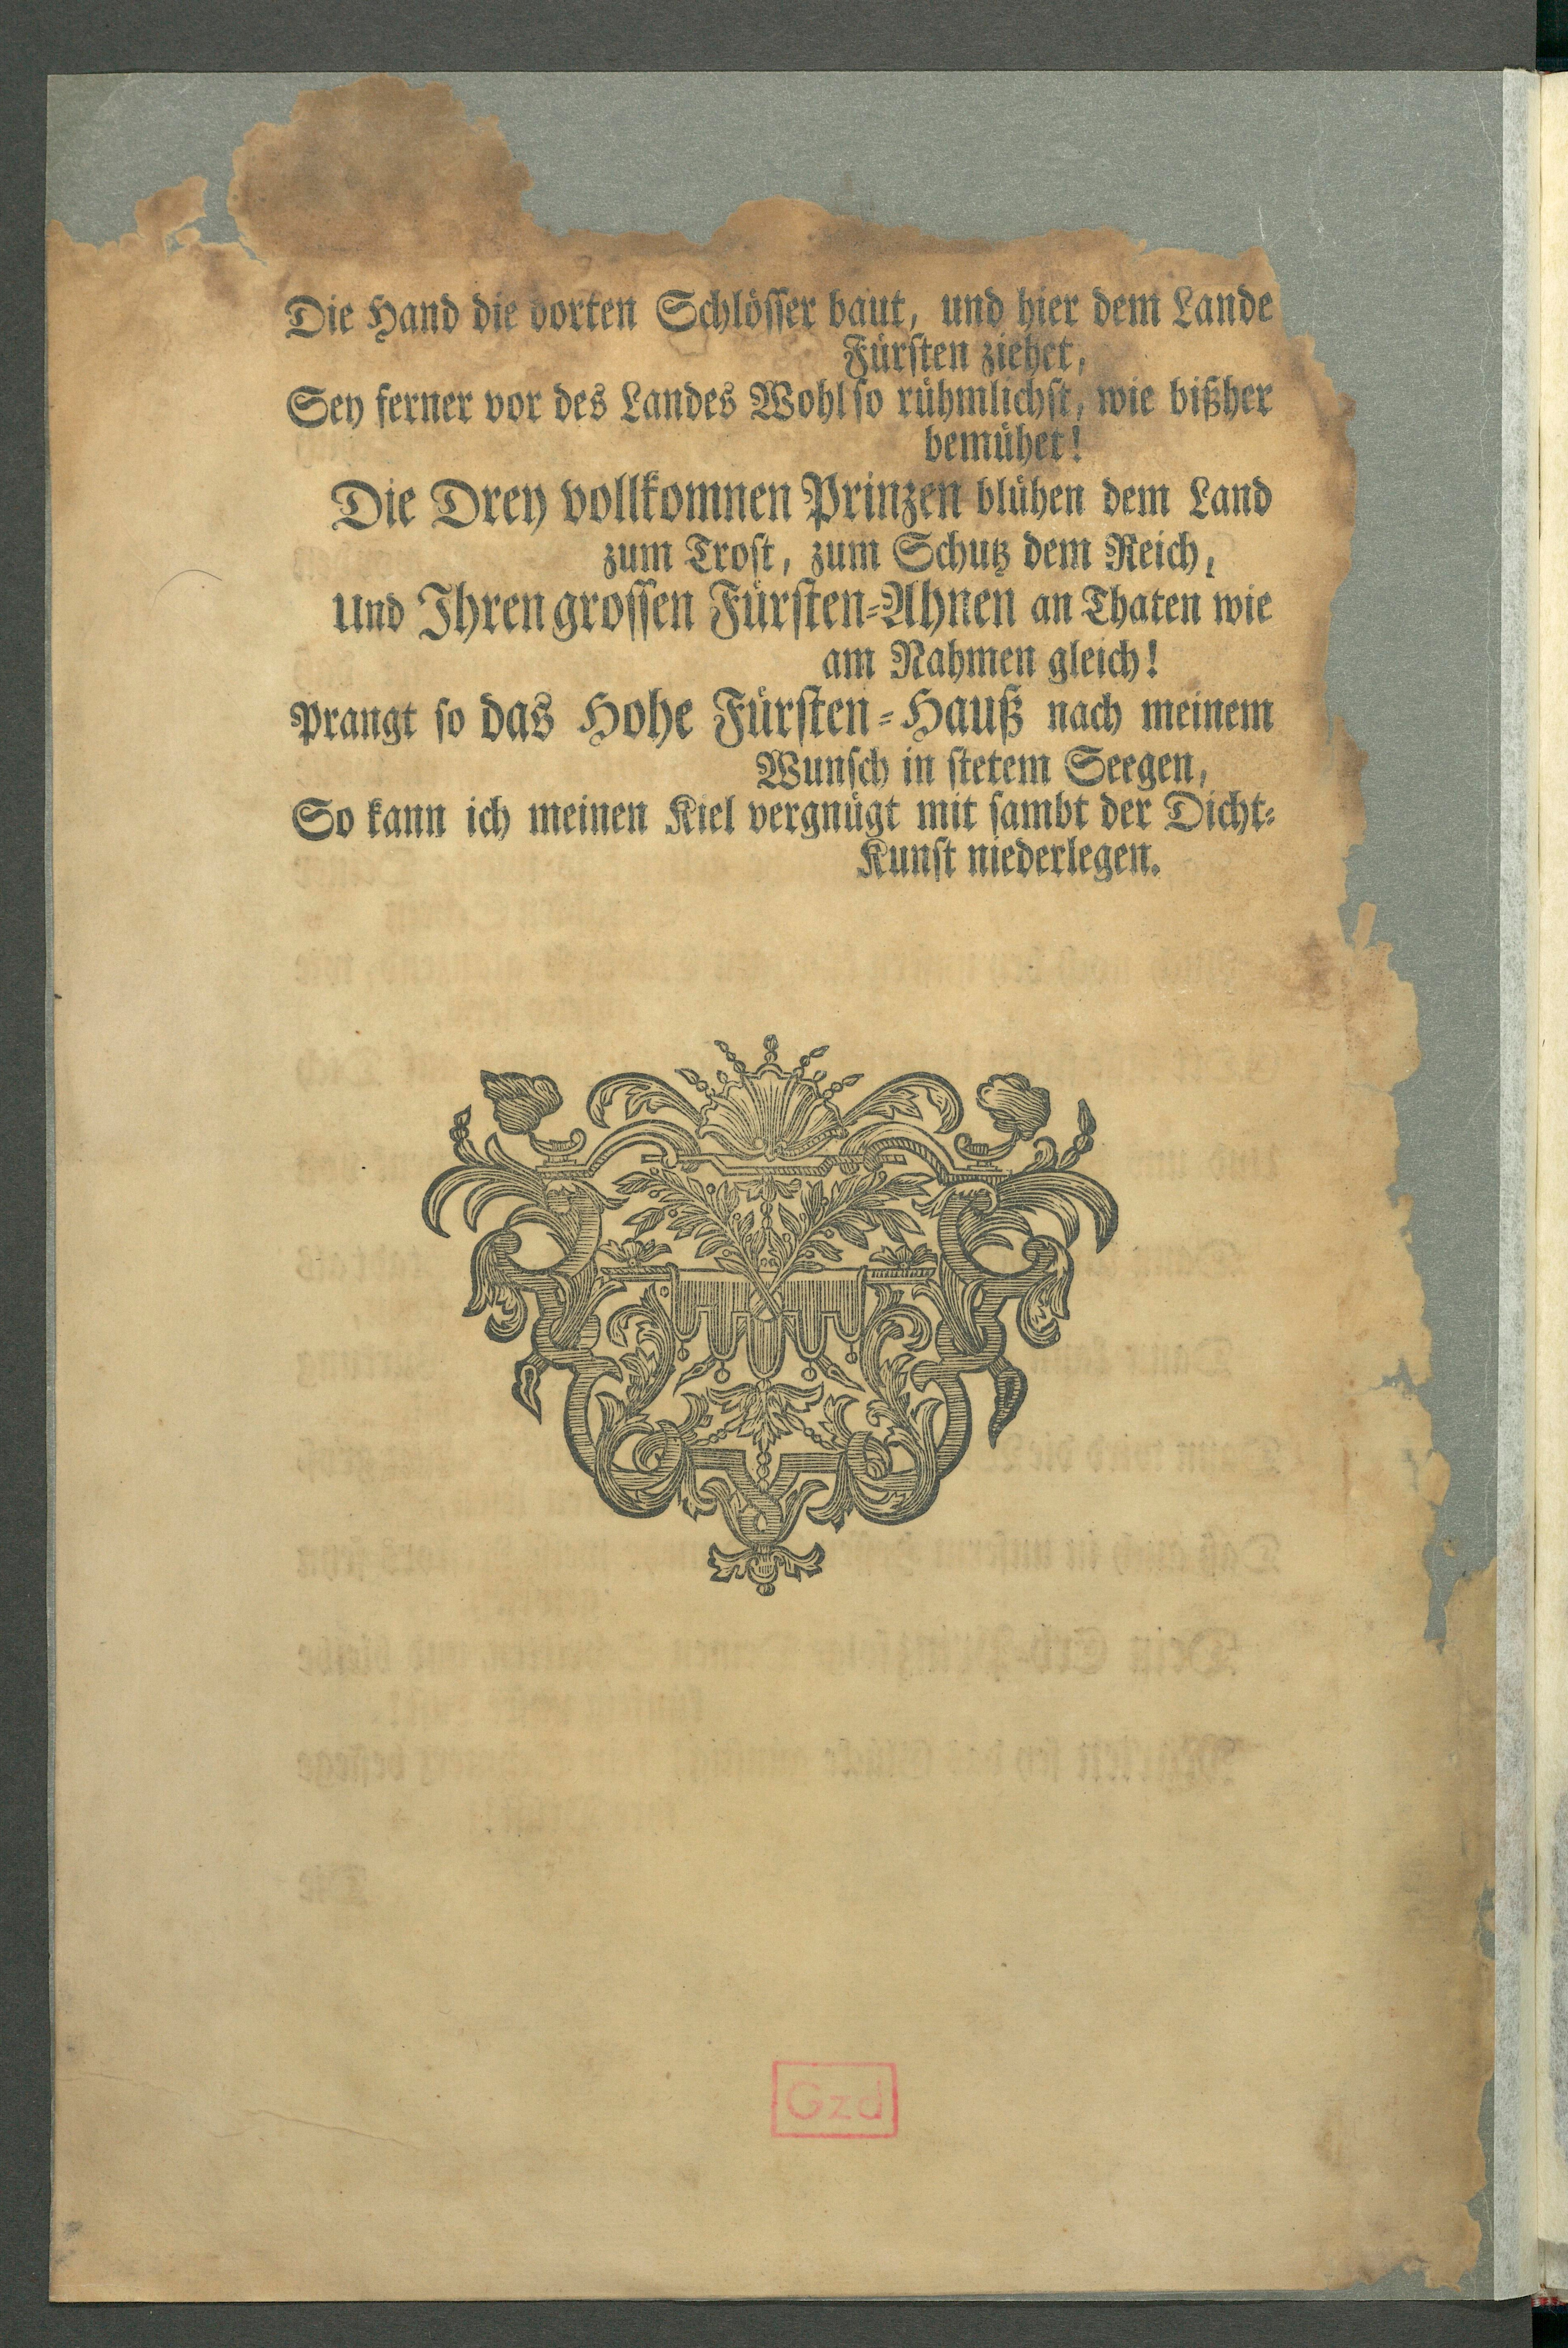 Die Hand die dorten Schlösser baut, und hier dem Lande
Fürsten ziehet,
Sey ferner vor des Landes Wohl so rühmlichst, wie bißher
bemühet!
Die Drey vollkomnen Prinzen blühen dem Land
zum Trost, zum Schutz dem Reich,
Und Ihren grossen Fürsten-Ahnen an Thaten wie
am Nahmen gleich!
Prangt so das Hohe Fürsten-Hauß nach meinem
Wunsch in stetem Seegen,
So kann ich meinen Kiel vergnügt mit sambt der Dicht-
Kunst niederlegen.
Gzd